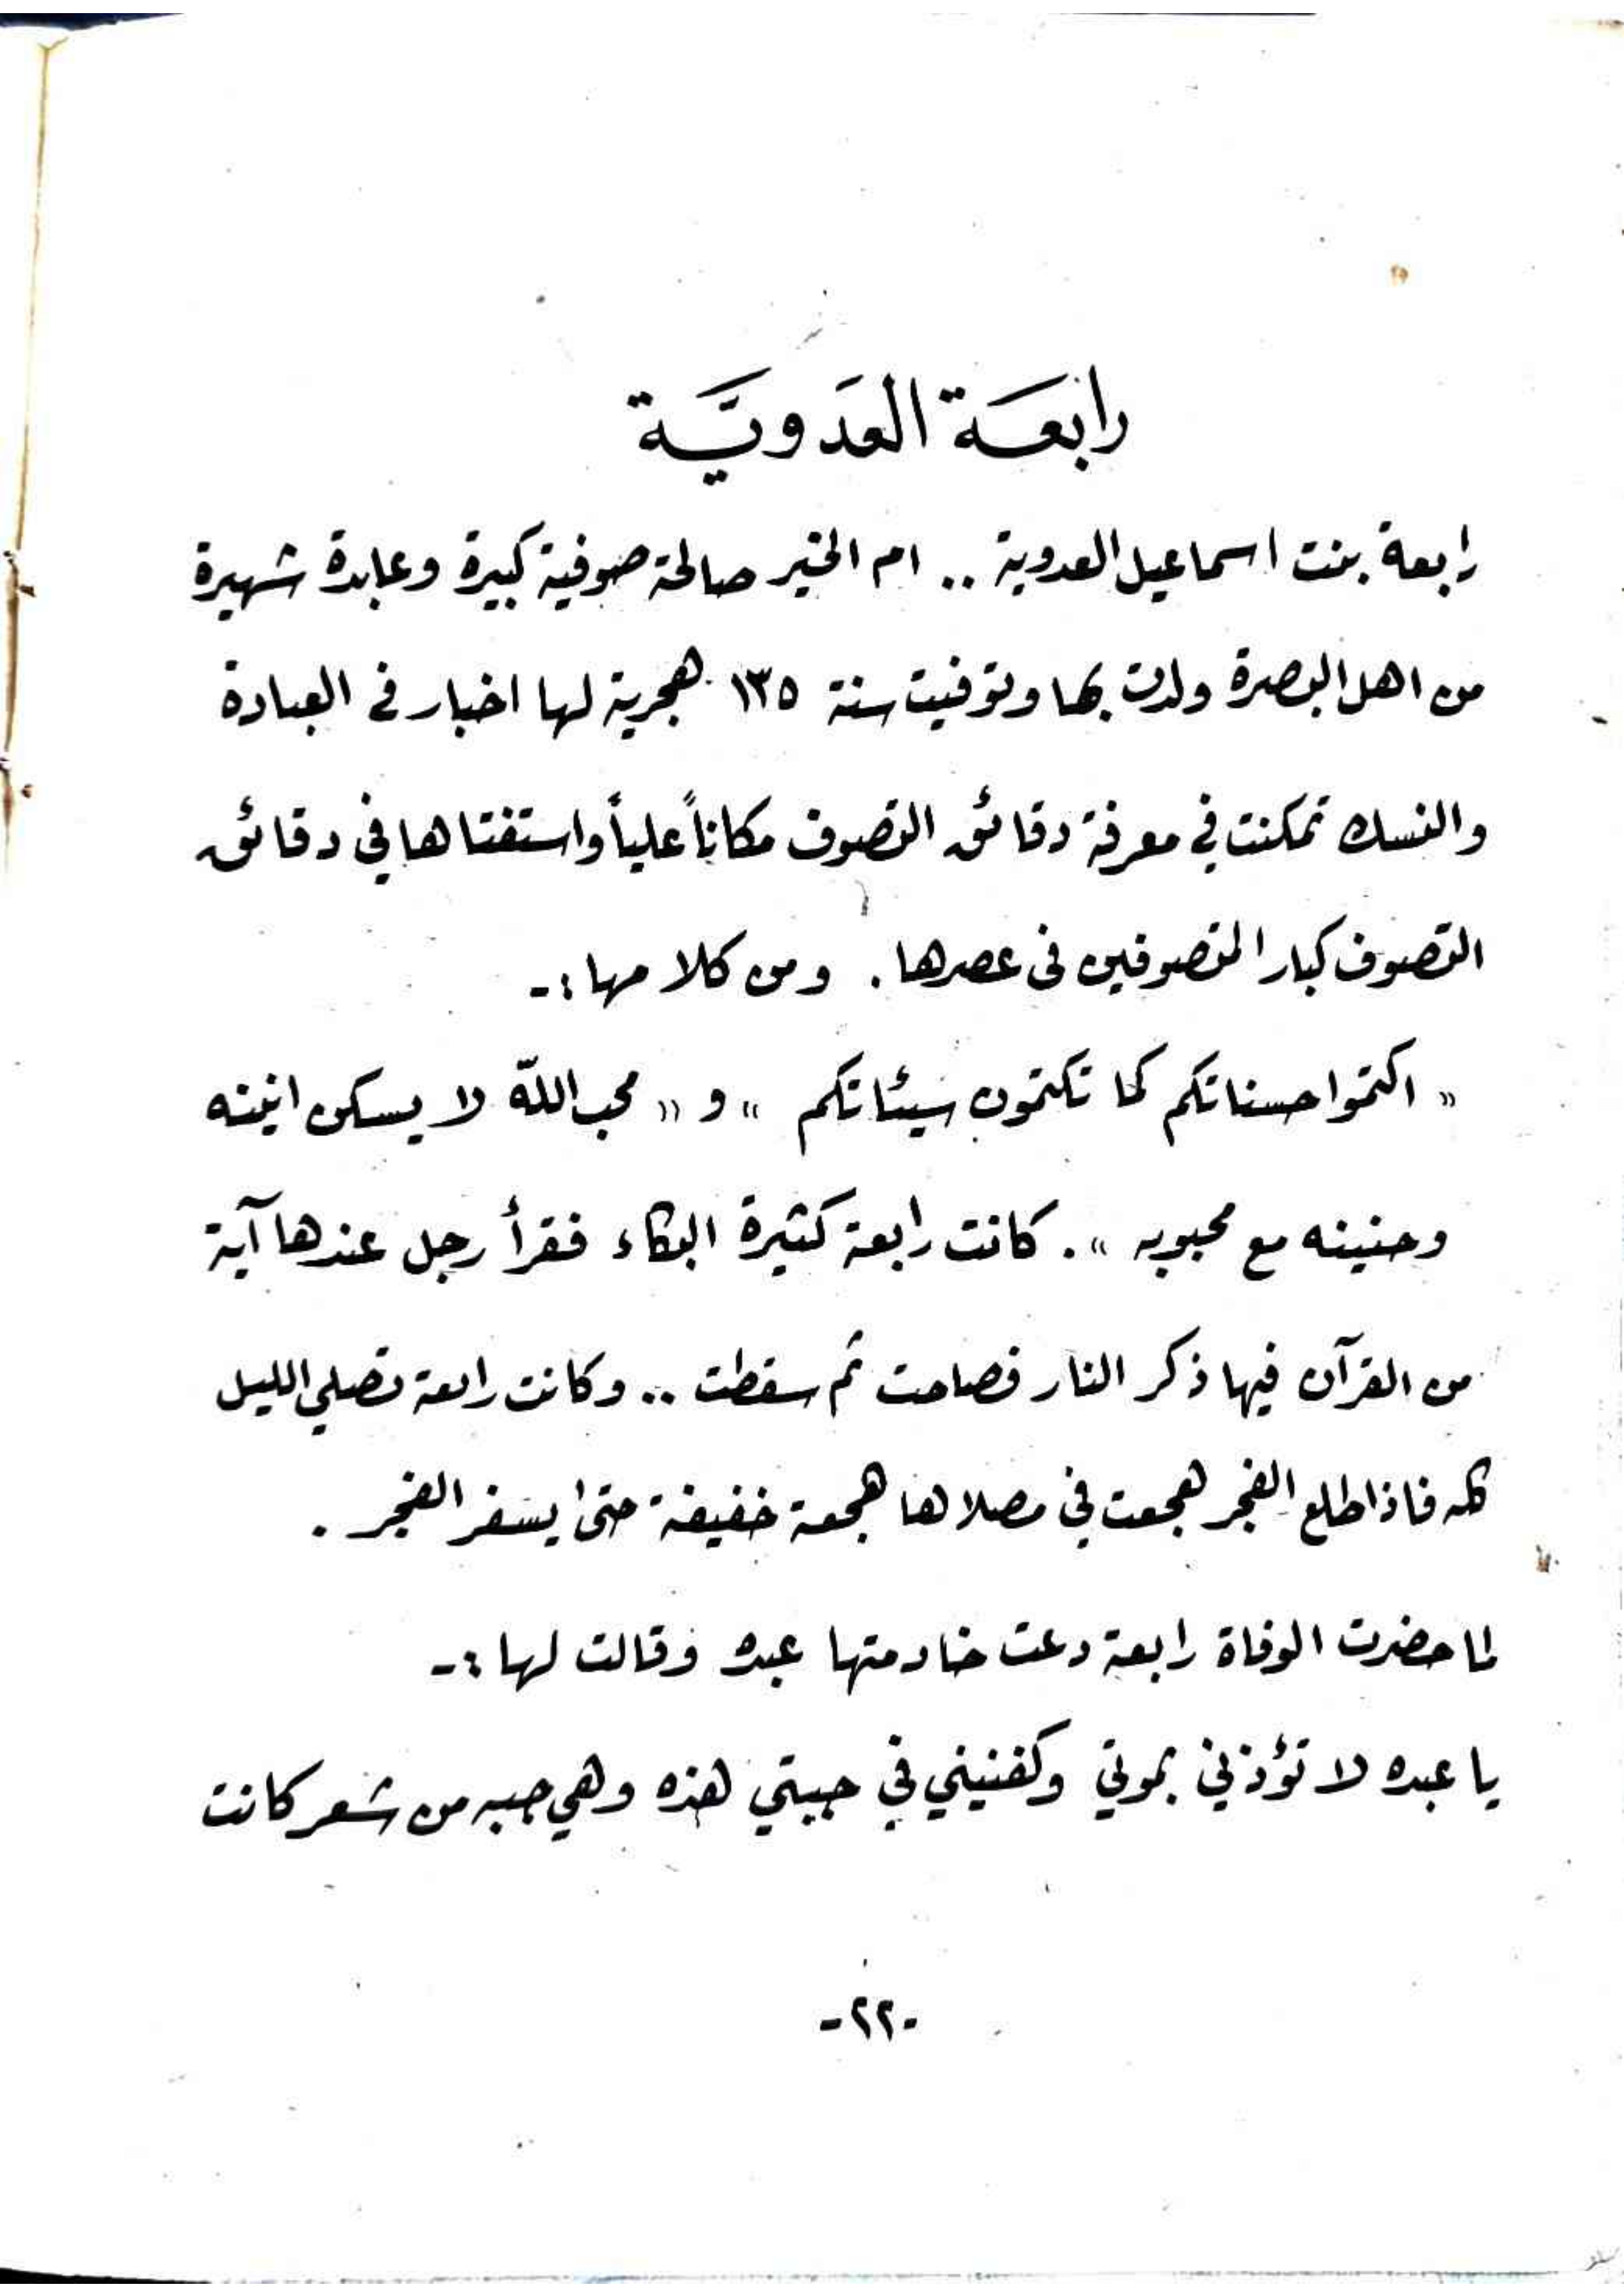 رابعَة العَدويَّة
رابعة بنت اسماعيل العدوية .. ام الخير صالحة صوفية كبيرة وعابدة شهيرة
من اهل البصرة ولدت بها وتوفيت سنة ١٣٥ هجرية لها اخبار في العبادة
والنسك تمكنت في معرفة دقائق التصوف مكاناً علياً واستفتاها في دقائق
التصوف كبار المتصوفين في عصرها . ومن كلامها :-
« اكتموا حسناتكم كما تكتمون سيئاتكم » و « محب اللّه لا يسكن انينه
وحنينه مع محبوبه » . كانت رابعة كثيرة البكاء فقرأ رجل عندها آية
من القرآن فيها ذكر النار فصاحت ثم سقطت .. وكانت رابعة تصلي الليل
كله فاذا طلع الفجر هجعت في مصلاها هجعة خفيفة حتى يسفر الفجر .
لما حضرت الوفاة رابعة دعت خادمتها عبده وقالت لها :-
يا عبده لا تؤذني بموتي وكفنيني في جبتي هذه وهي جبه من شعر كانت
-٢٢-